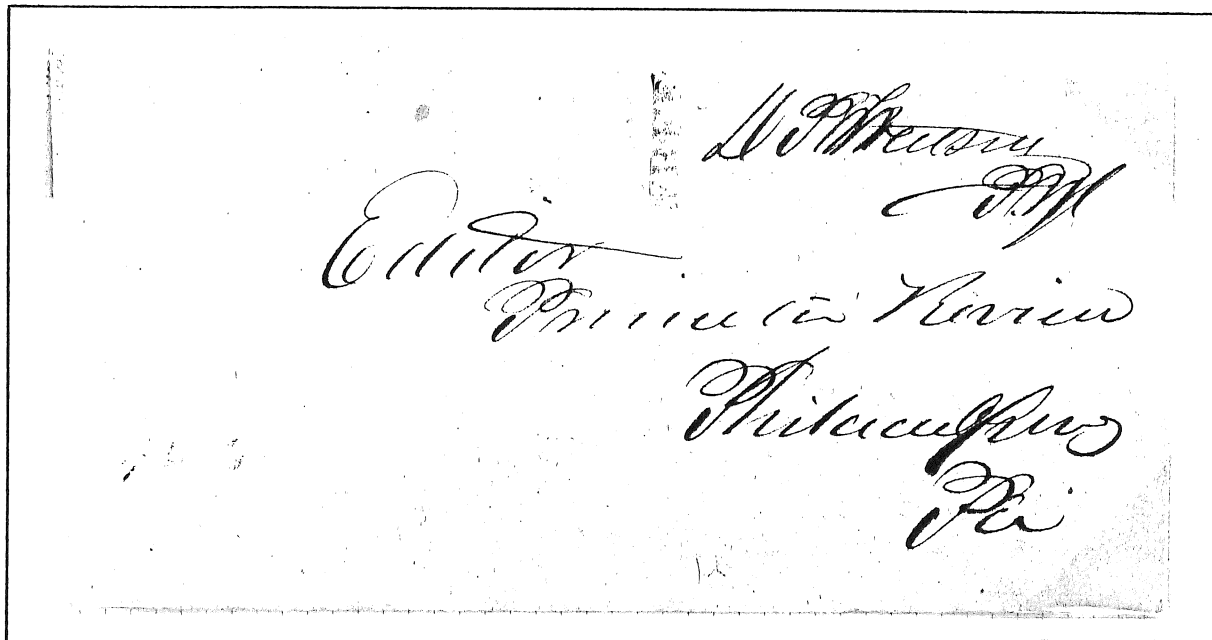 P.M
Editor
Princeton Review
Philadelphia
Pa